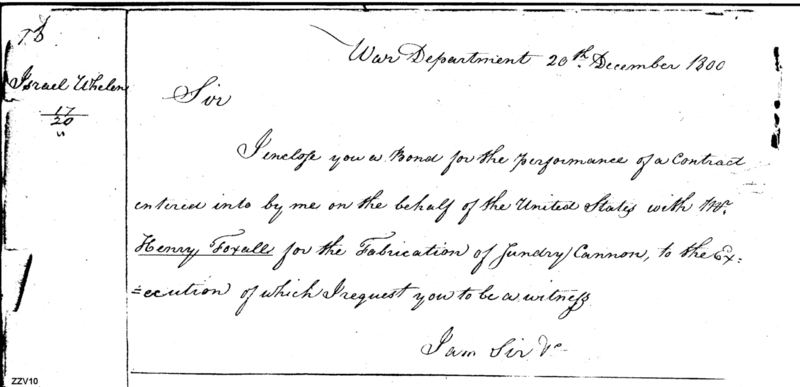 To
Israel Whelen
17
20
"
War Department 20th. December 1800
Sir
I inclose you a Bond for the performance of a Contract
entered into by me on the behalf of the United States with Mr.
Henry Foxall for the Fabrication of Sundry Cannon, to the Ex=
=ecution of which I request you to be a witness
I am Sir &c
ZZV10